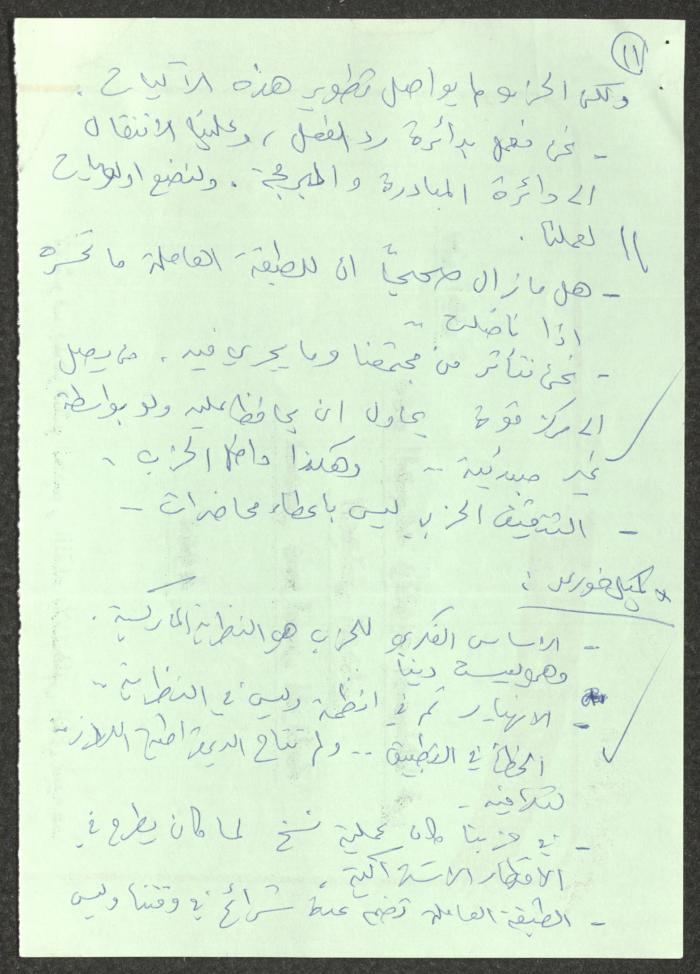 ١١
ولكن الحزب لم يواصل تطوير هذه الآليات .
- نحن نعمل بدائرة رد الفعل ، وعلينا الانتقال
الى دائرة المبادرة و البرمجة . ولنضع اولويات
لعملنا .
- هل ما زال صحيحاً ان للطبقة العاملة ما تخسره
اذا ناضلت ..
- نحن نتأثر من مجتمعنا وما يجري فيه . من يصل
الى مركز قوة يحاول ان يحافظ عليه ولو بواسطة
غير مبدئية .. وهكذا داخل الحزب .
- التثقيف الحزبي ليس باعطاء محاضرات -
* خوري :
- الاساس الفكري للحزب هو النظرية الماركسية .
وهو ليست ديناً .
- الانهيار تم في انظمة وليس في النظرية ..
الخطأ في التطبيق .. ولم تتاح الديمقراطية اللازمة
لتلافيه -
- في حزبنا كان عملية نسخ لما كان يطرح في
الاقطار الاشتراكية
- الطبقة العاملة تضم عدة شرائح في وقتنا وليس